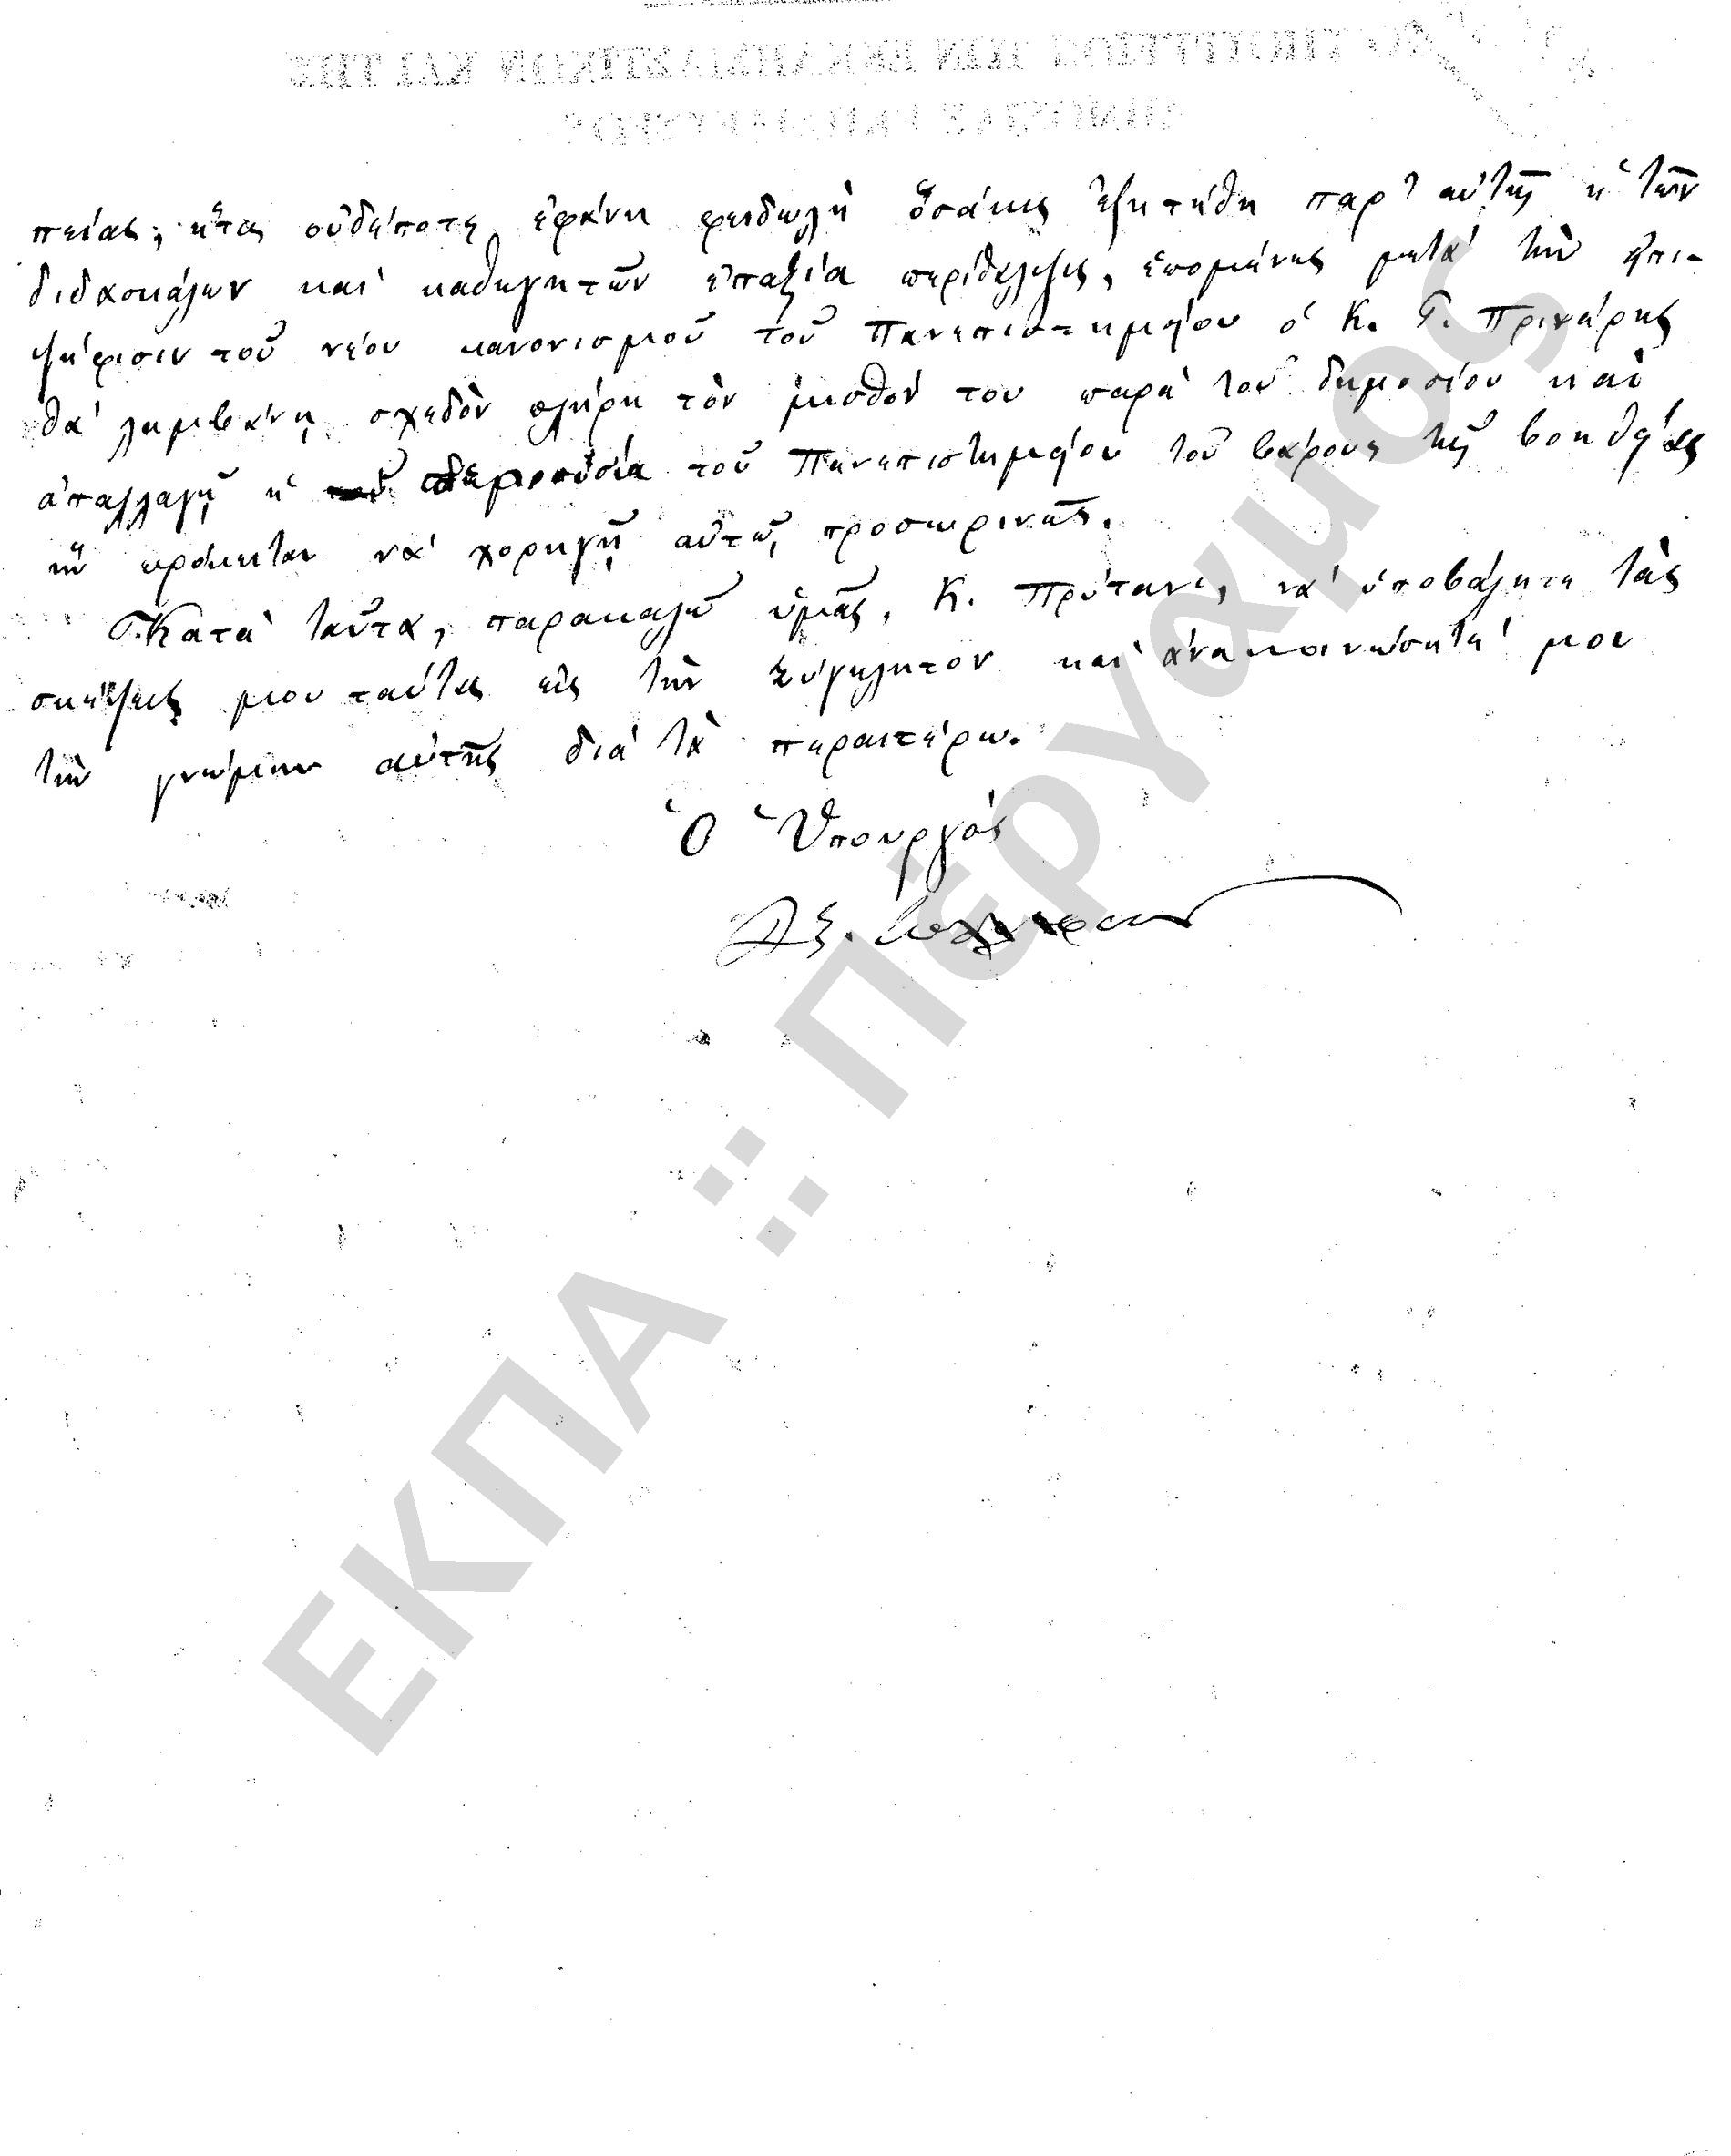 πείας, ἥτις οὐδέποτε ἐφάνη φειδωλὴ ὁσάκις ἐζητήθη παρ' αὐτῆς ἡ τῶν
διδασκάλων καὶ καθηγητῶν ἐπαξία περίθαλψις, ἑπομένως μετὰ τὴν ἐπι-
ψήφισιν τοῦ νέου κανονισμοῦ τοῦ Πανεπιστημείου ὁ Κ. Γ. Πρινάρης
θὰ λαμβάνῃ σχεδὸν πλήρη τὸν μισθόν του παρὰ τοῦ δημοσίου καὶ
ἀπαλλαγῇ ἡ περιουσία τοῦ Πανεπιστημείου τοῦ βάρους τῆς βοηθείας
ἣν πρόκειται νὰ χορηγῇ αὐτῷ προσωρινῶς.
Κατὰ ταῦτα, παρακαλῶ ὑμᾶς, Κ. Πρύτανι, νὰ ὑποβάλητε τὰς
σκέψεις μου ταύτας εἰς τὴν Σύγκλητον καὶ ἀνακοινώσητέ μοι
τὴν γνώμην αὐτῆς διὰ τὰ περαιτέρω.
Ὁ Ὑπουργὸς
ΕΚΠΑ :: Πέργαμος